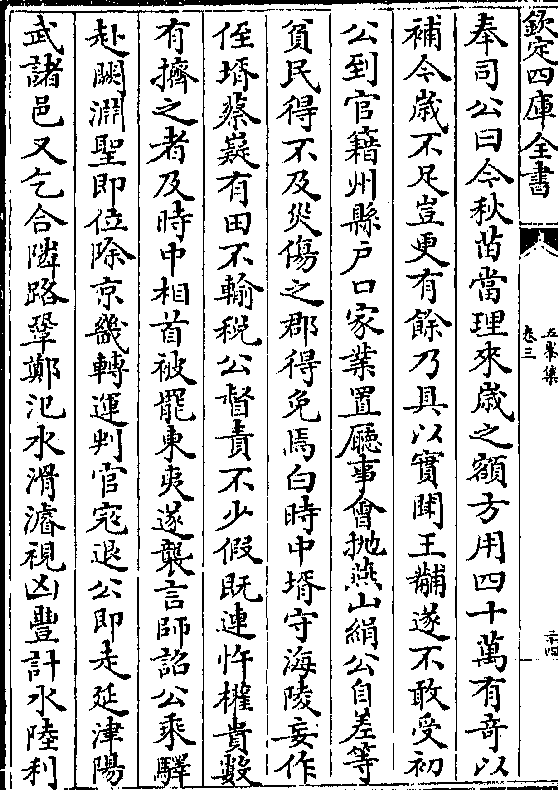 欽定四庫全書
五峯集
卷三
二十四
奉司公曰今秋苗當理來歳之額方用四十萬有奇以
補今歳不足豈更有餘乃具以實聞王黼遂不敢受初
公到官籍州縣户口家業置廳事㑹抛燕山絹公自差等
貧民得不及災傷之郡得免焉白時中壻守海陵妄作
侄壻蔡嶷有田不輸税公督責不少假既連忤權貴數
有擠之者及時中相首被罷東夷遂襲言師詔公乘驛
赴闕淵聖即位除京畿轉運判官宼退公即走延津陽
武諸邑又乞合隣路鞏鄭氾水滑濬視凶豐計水陸利